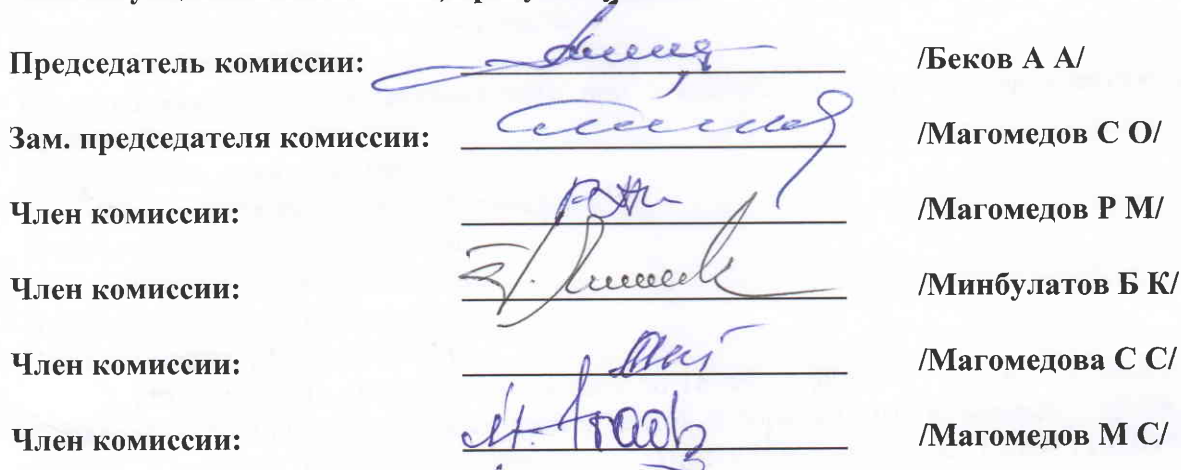 Председатель комиссии: /Беков А А/
Зам. председателя комиссии: /Магомедов С О/
Член комиссии: /Магомедов Р М/
Член комиссии: /Минбулатов Б К/
Член комиссии: /Магомедова С С/
Член комиссии: /Магомедов М С/